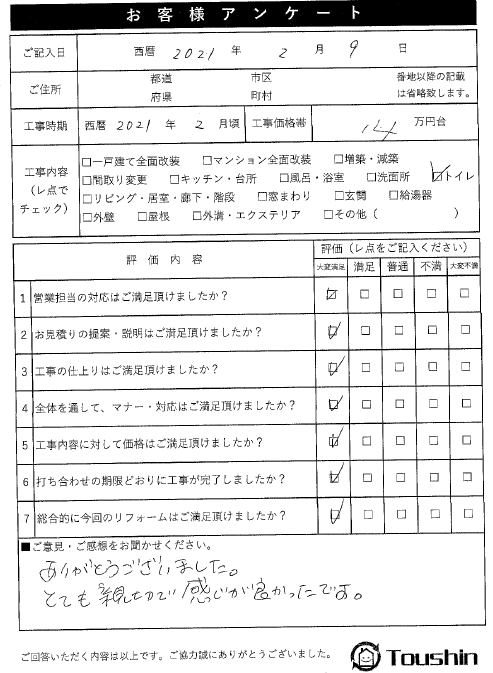 お客様アンケート
ご記入日 西暦 2021 年 2 月 9 日
ご住所 都道府県 市区町村 番地以降の記載は省略致します。
工事時期 西暦 2021 年 2 月頃 工事価格帯 14 万円台
工事内容（レ点でチェック）
□一戸建て全面改装 □マンション全面改装 □増築・減築
□間取り変更 □キッチン・台所 □風呂・浴室 □洗面所 ☑トイレ
□リビング・居室・廊下・階段 □窓まわり □玄関 □給湯器
□外壁 □屋根 □外溝・エクステリア □その他（ ）
評価内容 評価（レ点をご記入ください）
大変満足 満足 普通 不満 大変不満
1 営業担当の対応はご満足頂けましたか？ ☑ □ □ □ □
2 お見積りの提案・説明はご満足頂けましたか？ ☑ □ □ □ □
3 工事の仕上りはご満足頂けましたか？ ☑ □ □ □ □
4 全体を通して、マナー・対応はご満足頂けましたか？ ☑ □ □ □ □
5 工事内容に対して価格はご満足頂けましたか？ ☑ □ □ □ □
6 打ち合わせの期限どおりに工事が完了しましたか？ ☑ □ □ □ □
7 総合的に今回のリフォームはご満足頂けましたか？ ☑ □ □ □ □
■ご意見・ご感想をお聞かせください。
ありがとうございました。
とても親切で感じが良かったです。
ご回答いただく内容は以上です。ご協力誠にありがとうございました。
Toushin